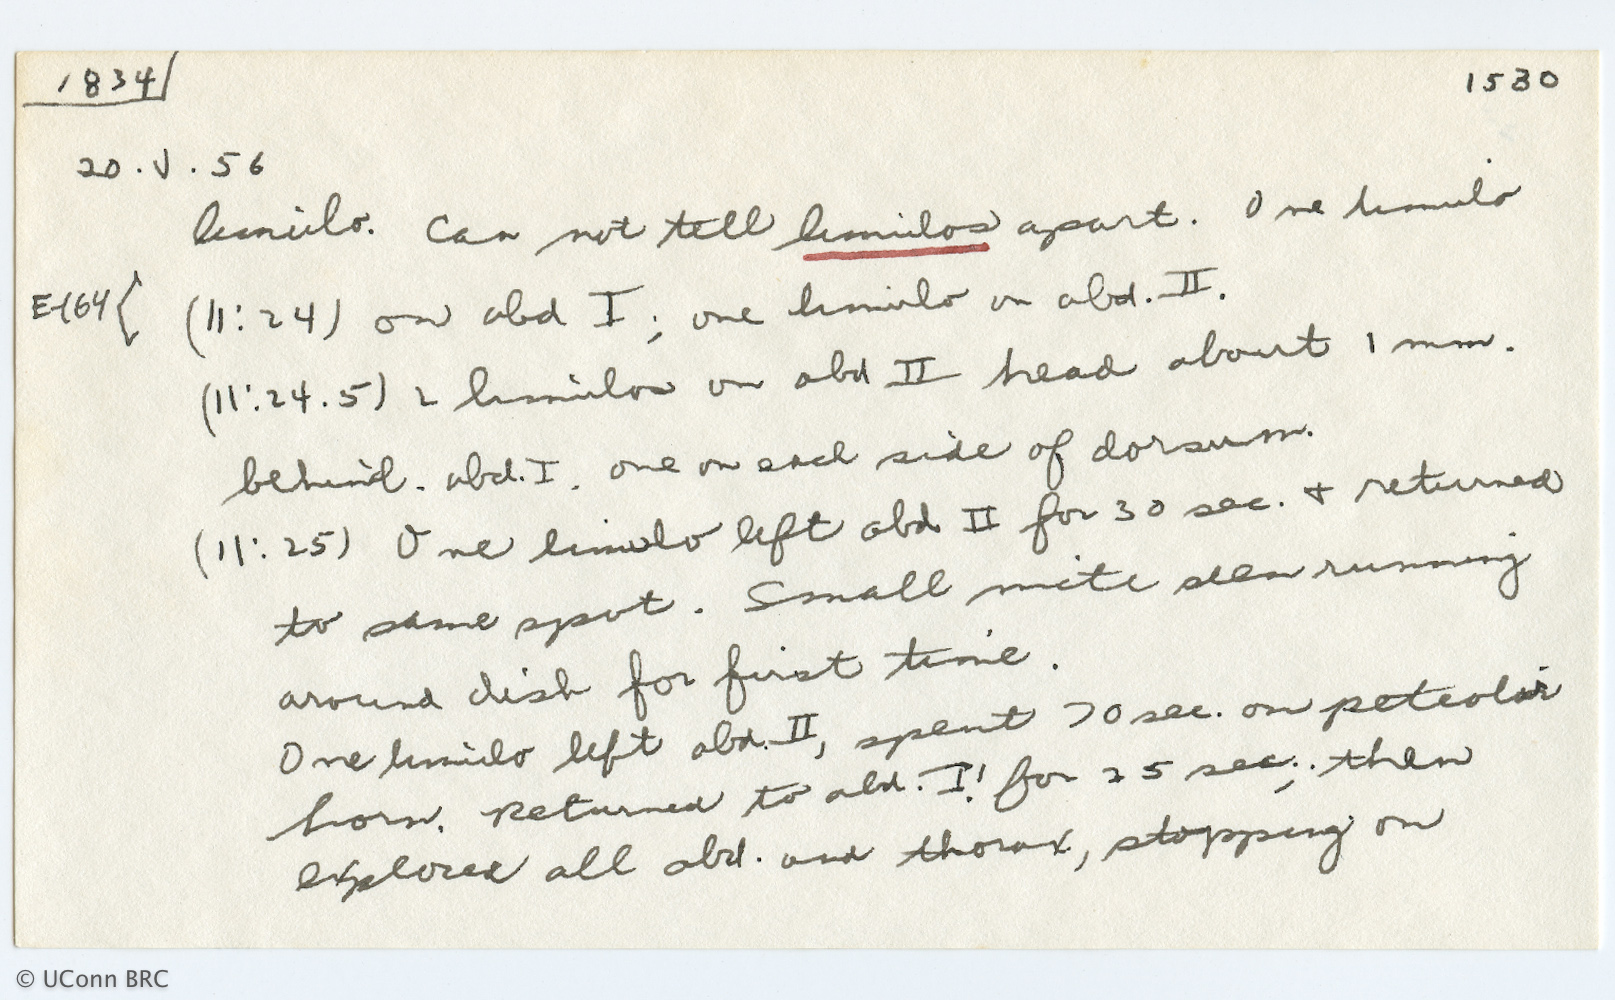 1834
1530
20.V.56
limulo. Can not tell limulos apart. One limulo
E-164 { (11:24) on abd I; one limulo on abd. II.
(11:24.5) 2 limulos on abd II head about 1 mm.
behind. abd. I. one on each side of dorsum.
(11:25) One limulo left abd II for 30 sec. + returned
to same spot. Small mite seen running
around dish for first time.
One limulo left abd. II, spent 70 sec. on petiolar
horn. Returned to abd. I! for 25 sec.; then
explored all abd. and thorax, stopping on
© UConn BRC